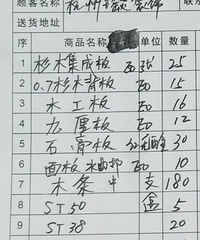 顾客名称 杭州
送货地址
序 商品名称 单位 数量
1 杉木集成板 E0 张 25
2 0.7杉木背板 E0 15
3 水工板 E0 16
4 九厘板 E0 12
5 石膏板 30
6 面板 水曲柳 E0 10
7 木条 中 支 180
8 ST50 盒 5
9 ST38 20